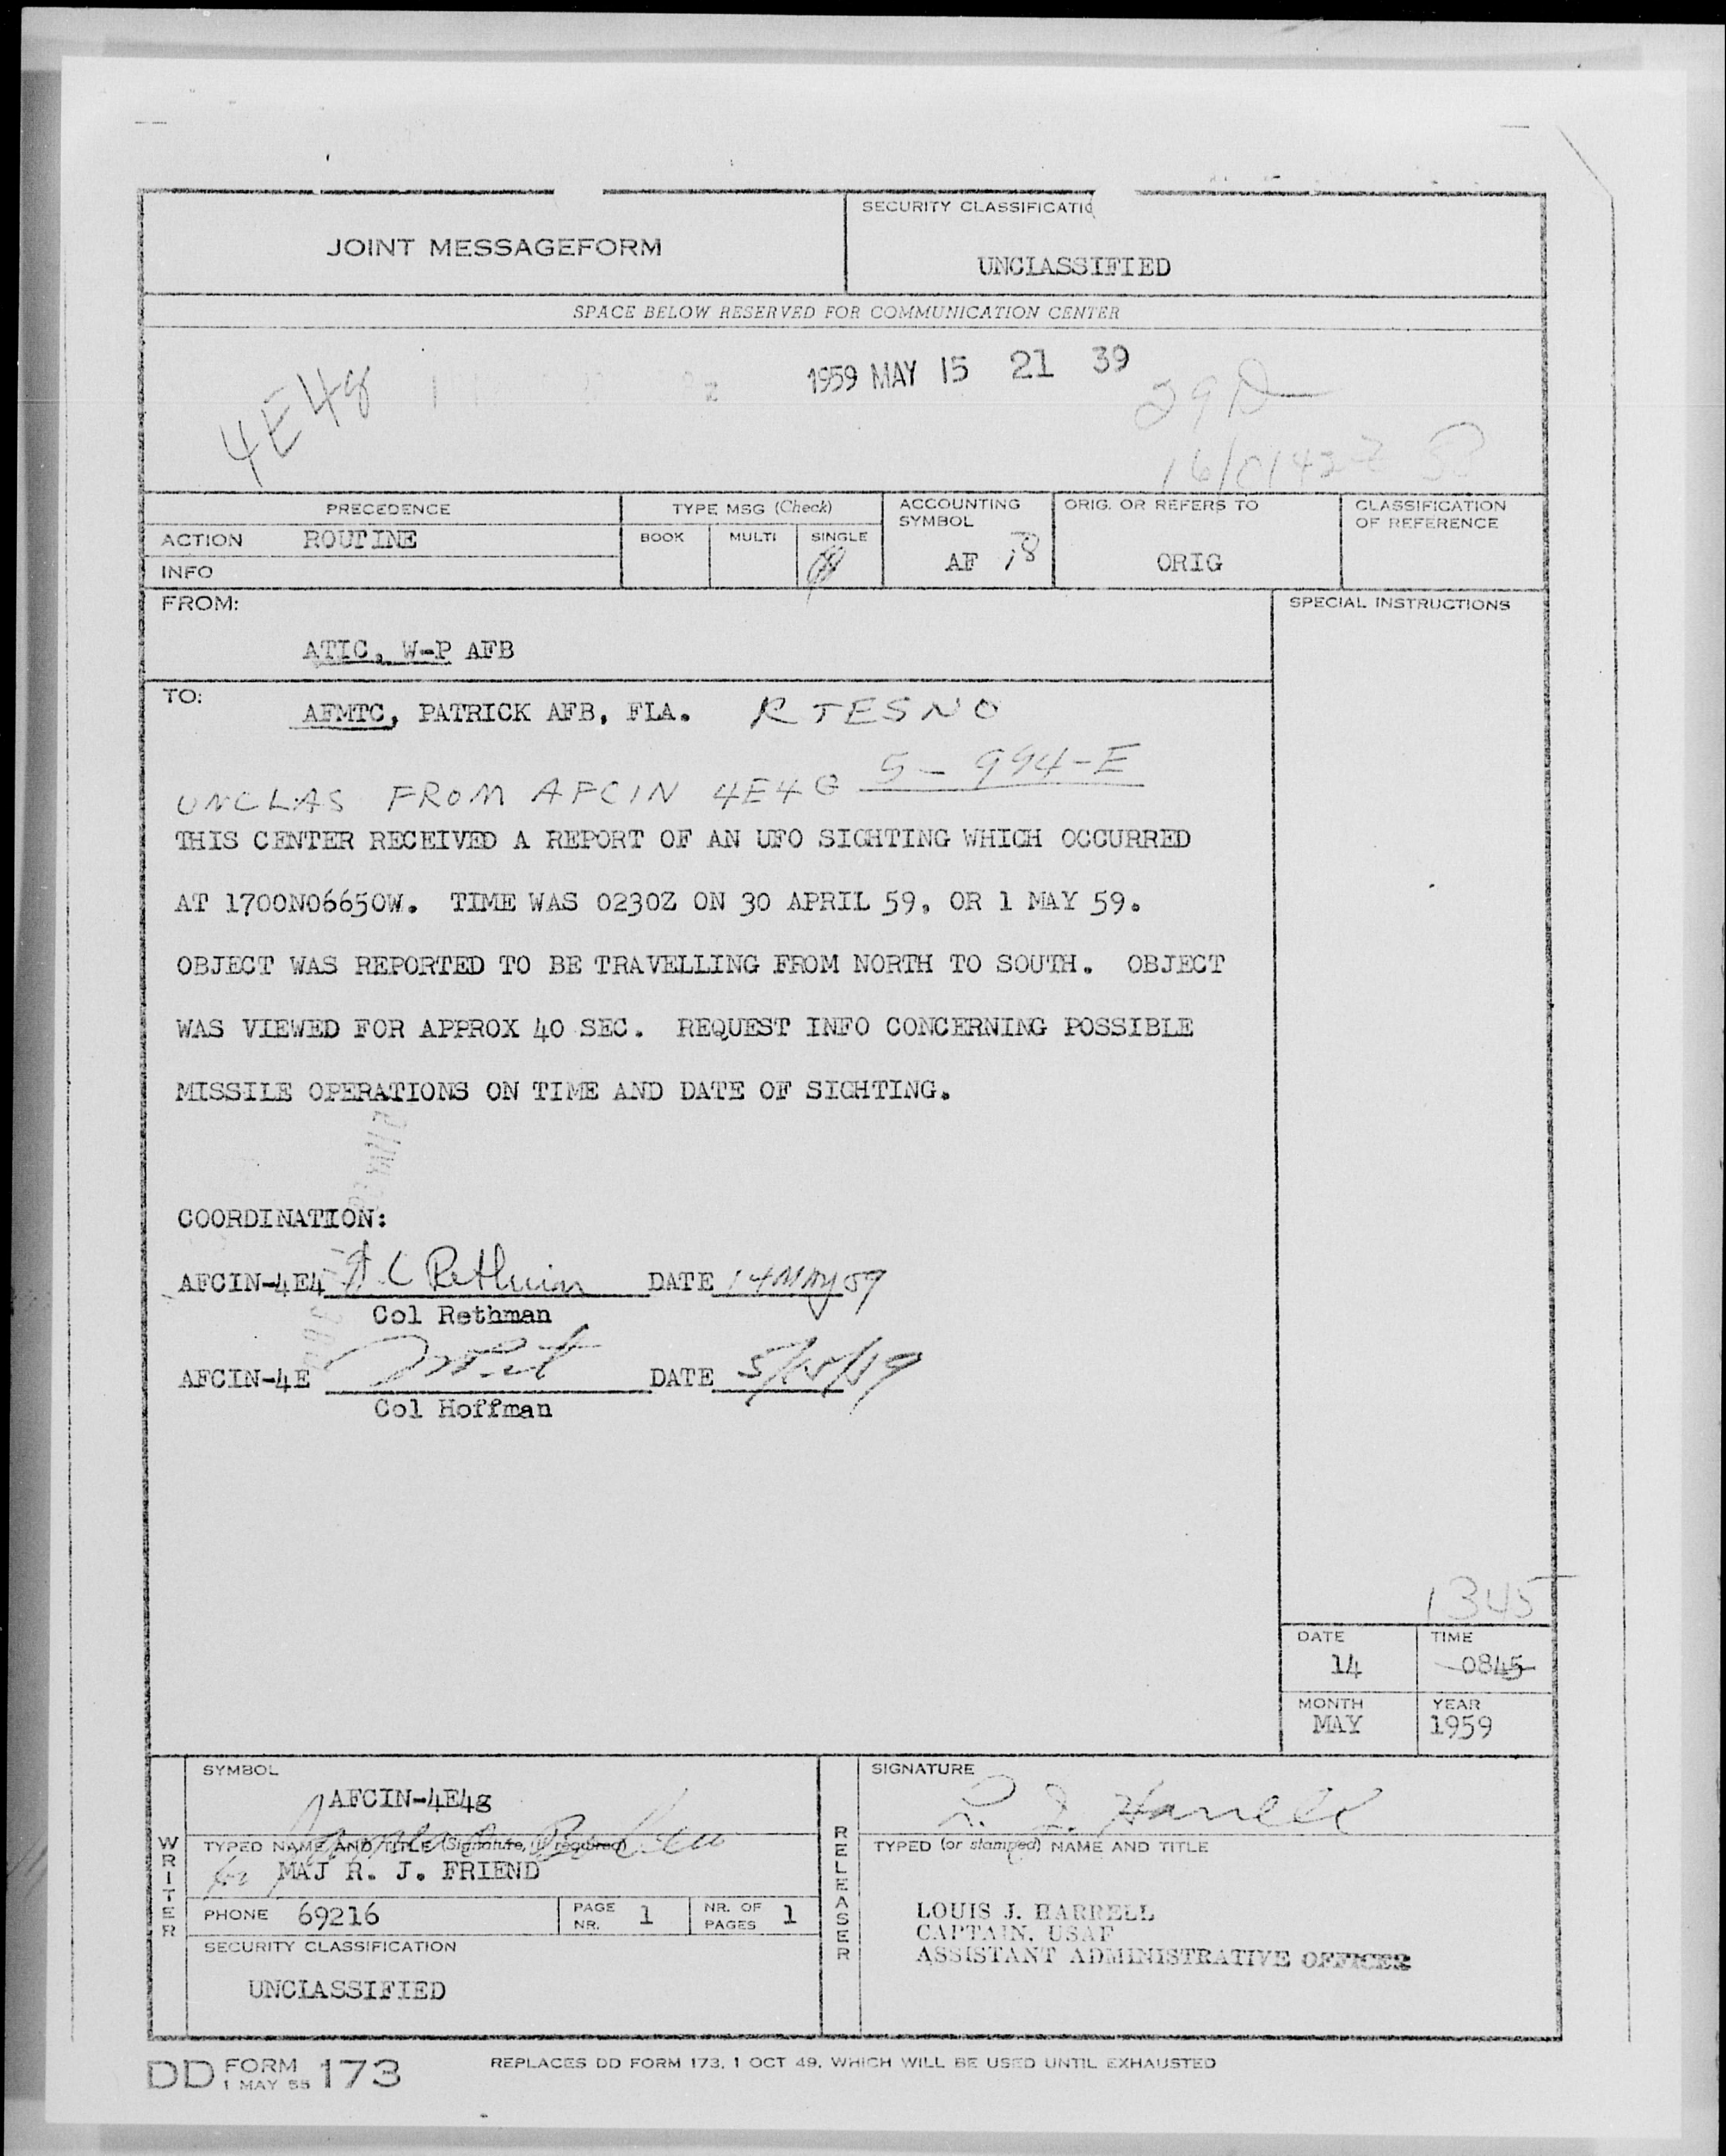 JOINT MESSAGEFORM
SECURITY CLASSIFICATIO
UNCLASSIFIED
SPACE BELOW RESERVED FOR COMMUNICATION CENTER
4E4g
1959 MAY 15 21 39
16/0142Z
PRECEDENCE
TYPE MSG (Check)
ACCOUNTING SYMBOL
ORIG. OR REFERS TO
CLASSIFICATION OF REFERENCE
ACTION ROUTINE
BOOK MULTI SINGLE
AF
ORIG
INFO
FROM:
SPECIAL INSTRUCTIONS
ATIC, W-P AFB
TO:
AFMTC, PATRICK AFB, FLA. RTESNO
UNCLAS FROM AFCIN 4E4G 5-994-E
THIS CENTER RECEIVED A REPORT OF AN UFO SIGHTING WHICH OCCURRED
AT 1700N06650W. TIME WAS 0230Z ON 30 APRIL 59, OR 1 MAY 59.
OBJECT WAS REPORTED TO BE TRAVELLING FROM NORTH TO SOUTH. OBJECT
WAS VIEWED FOR APPROX 40 SEC. REQUEST INFO CONCERNING POSSIBLE
MISSILE OPERATIONS ON TIME AND DATE OF SIGHTING.
COORDINATION:
AFCIN-4E4 DATE 14 May 59
Col Rethman
AFCIN-4E DATE 5/15/59
Col Hoffman
1345
DATE
TIME
14
0845
MONTH
YEAR
MAY
1959
WRITER
SYMBOL
AFCIN-4E4g
TYPED NAME AND TITLE (Signature, if required)
for MAJ R. J. FRIEND
PHONE 69216
PAGE NR. 1
NR. OF PAGES 1
SECURITY CLASSIFICATION
UNCLASSIFIED
RELEASER
SIGNATURE
L. J. Harrell
TYPED (or stamped) NAME AND TITLE
LOUIS J. HARRELL
CAPTAIN, USAF
ASSISTANT ADMINISTRATIVE OFFICER
DD FORM 1 MAY 55 173
REPLACES DD FORM 173, 1 OCT 49, WHICH WILL BE USED UNTIL EXHAUSTED